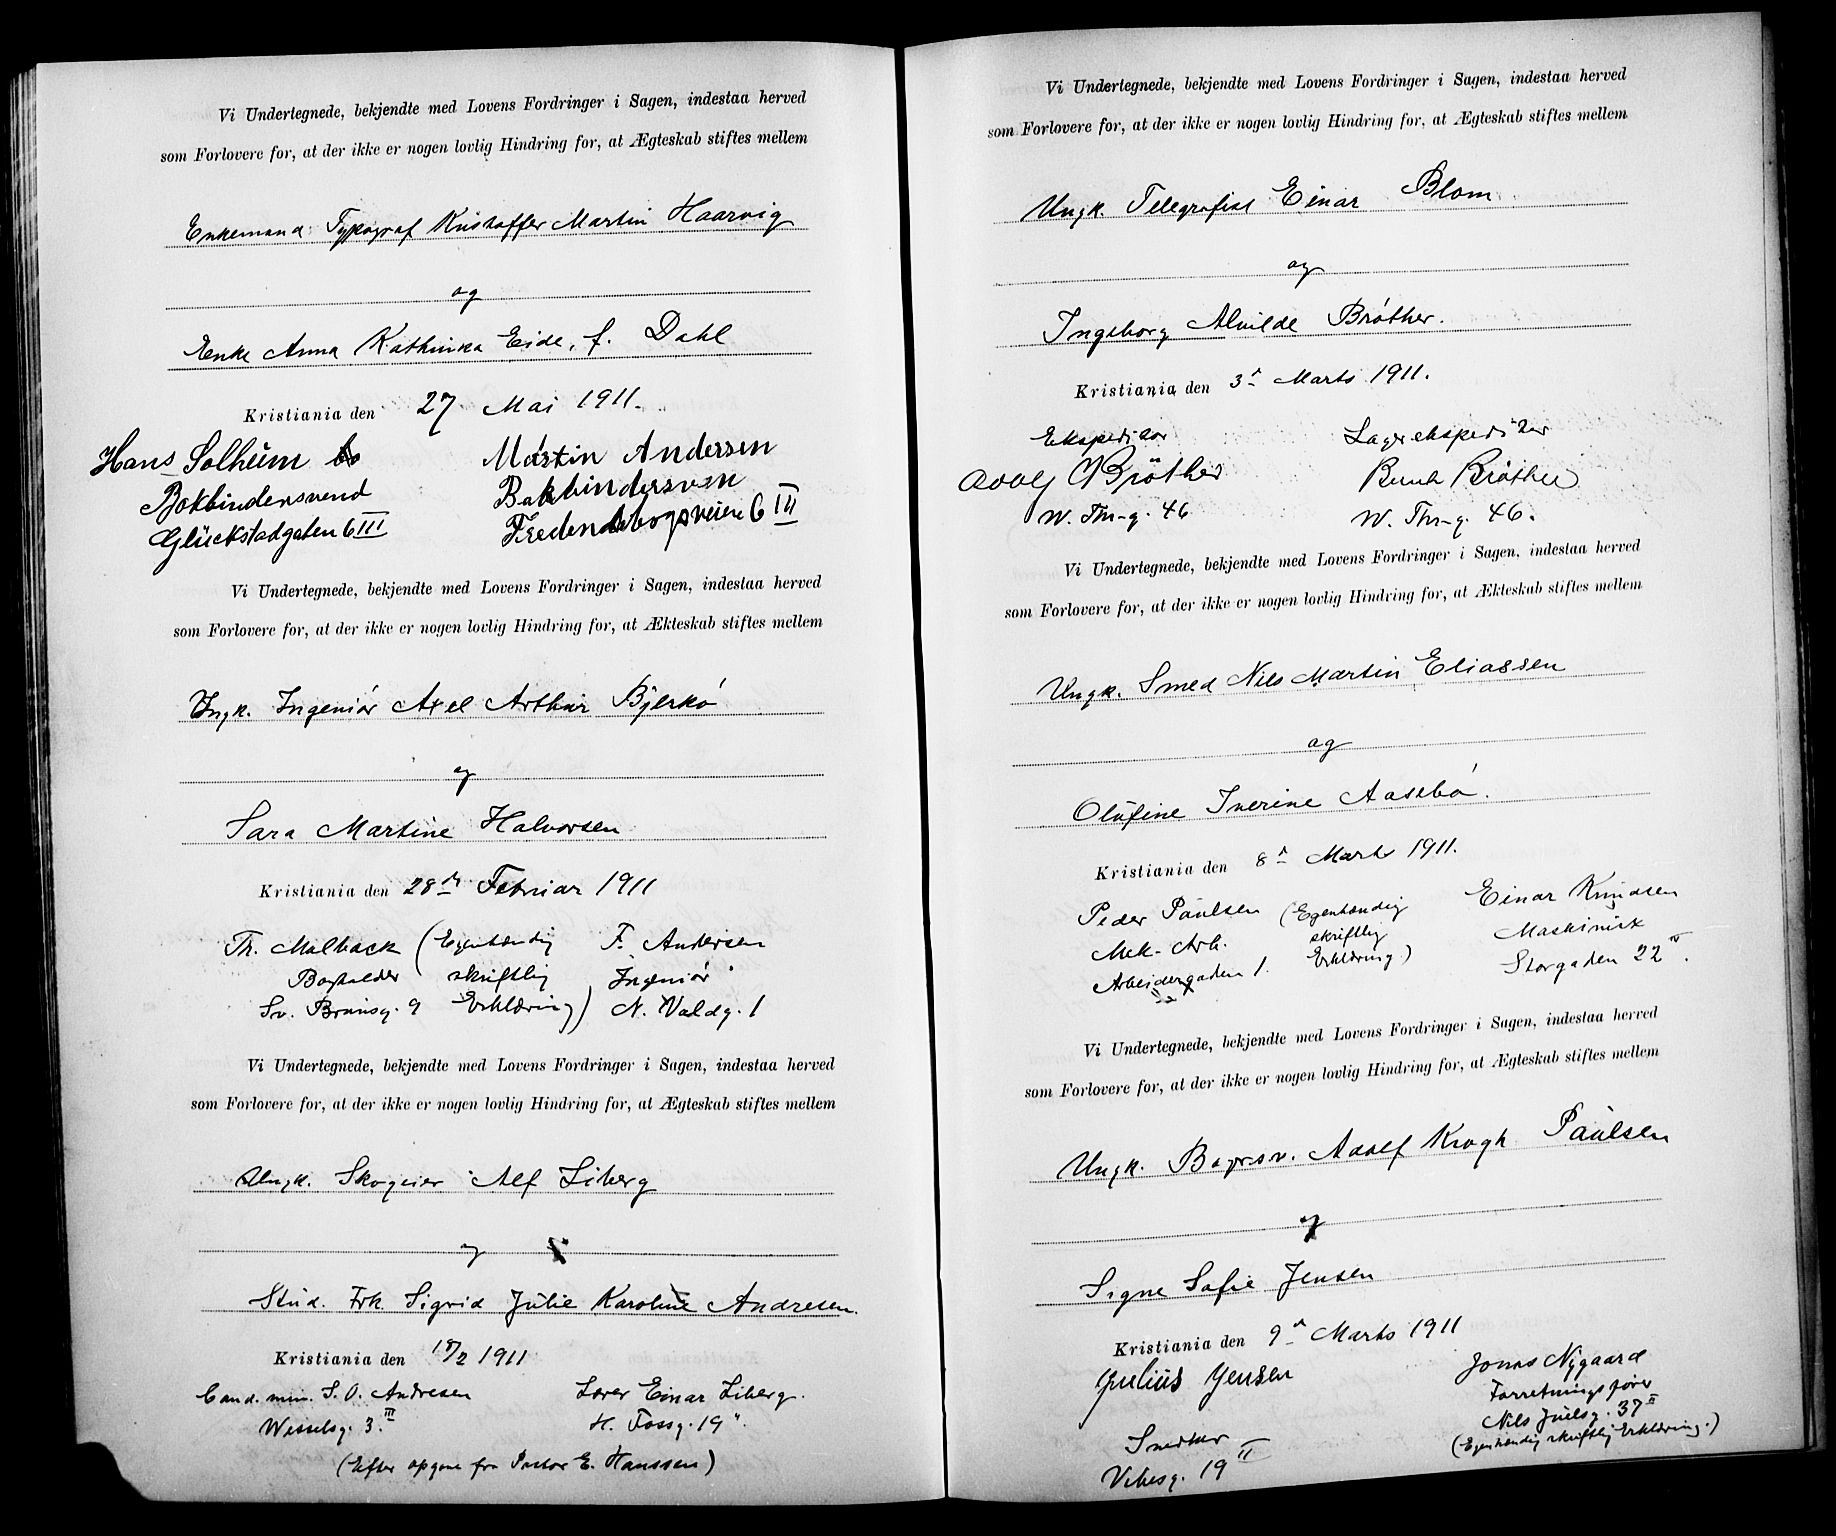 Vi Undertegnede, bekjendte med Lovens Fordringer i Sagen, indestaa herved
som Forlovere for, at der ikke er nogen lovlig Hindring for, at Ægteskab stiftes mellem
Enkemand Typograf Kristoffer Martin Haarvig
og
Enke Anna Kathinka Eide, f. Dahl
Kristiania den 27 Mai 1911.
Hans Solheim Martin Andersen
Bokbindersvend Bokbindersven
Glückstadgaten 6 III Fredensborgsveien 6 III
Vi Undertegnede, bekjendte med Lovens Fordringer i Sagen, indestaa herved
som Forlovere for, at der ikke er nogen lovlig Hindring for, at Ækteskab stiftes mellem
Ungk. Ingeniør Axel Arthur Bjerkø
og
Sara Martine Halvorsen
Kristiania den 28de Februar 1911
Th. Malback (Egenhændig F. Andersen
Bogholder skriftlig Ingeniør
Sv. Brunsg. 9 Erklæring) N. Valdg. 1
Vi Undertegnede, bekjendte med Lovens Fordringer i Sagen, indestaa herved
som Forlovere for, at der ikke er nogen lovlig Hindring for, at Ægteskab stiftes mellem
Ungk. Skogeier Alf Liberg
og
Stud. Frk Sigrid Julie Karoline Andresen.
Kristiania den 18/2 1911
Cand. min. S. O. Andresen Lærer Einar Liberg.
Wesselsg. 3 III H. Fossg. 19
(Efter opgave fra Pastor E. Hanssen)
Vi Undertegnede, bekjendte med Lovens Fordringer i Sagen, indestaa herved
som Forlovere for, at der ikke er nogen lovlig Hindring for, at Ægteskab stiftes mellem
Ungk. Telegrafist Einar Blom
og
Ingeborg Alvilde Brøther.
Kristiania den 3de Marts 1911.
Ekspeditør Lagerekspeditør
Adolf Brøther Bernh Brøther
W. Thr-g. 46 W. Thr-g. 46.
Vi Undertegnede, bekjendte med Lovens Fordringer i Sagen, indestaa herved
som Forlovere for, at der ikke er nogen lovlig Hindring for, at Ækteskab stiftes mellem
Ungk. Smed Nils Martin Eliassen
og
Olufine Iverine Aasebø.
Kristiania den 8de Marts 1911.
Peder Paulsen (Egenhændig Einar Knudsen
Mek. Arb. skriftlig Maskinist
Arbeidergaden 1. Erklæring) Storgaden 22 IV.
Vi Undertegnede, bekjendte med Lovens Fordringer i Sagen, indestaa herved
som Forlovere for, at der ikke er nogen lovlig Hindring for, at Ægteskab stiftes mellem
Ungk. Bagersv. Adolf Krogh Paulsen
og
Signe Sofie Jensen
Kristiania den 9de Marts 1911
Julius Jensen Jonas Nygaard
Snedker Forretningsfører
Vibesg. 19 II Nils Juelsg. 37 II
(Egenhændig skriftlig Erklæring.)